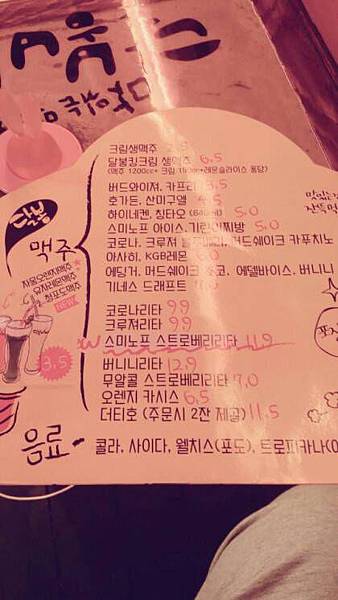 달봉
맥주
자몽오렌지맥주
유자레몬맥주
청포도맥주
NEW
3,5
크림생맥주
달봉킹크림 생맥주 6,5
(맥주 1200cc+ 크림 +레몬슬라이스 퐁당)
버드와이저, 카프리 3,5
호가든, 산미구엘
하이네켄, 칭타오 (640ml) 5.0
스미노프 아이스, 기린이찌방 5.0
코로나, 크루져 머드쉐이크 카푸치노
아사히, KGB레몬
에딩거, 머드쉐이크 초코, 에델바이스, 버니니
기네스 드래프트
코로나리타 9,9
크루져리타 9,9
스미노프 스트로베리리타 11,9
버니니리타 12,9
무알콜 스트로베리리타 7,0
오렌지 카시스 6,5
더티호 (주문시 2잔 제공) 11,5
음료
콜라, 사이다, 웰치스(포도), 트로피카나(